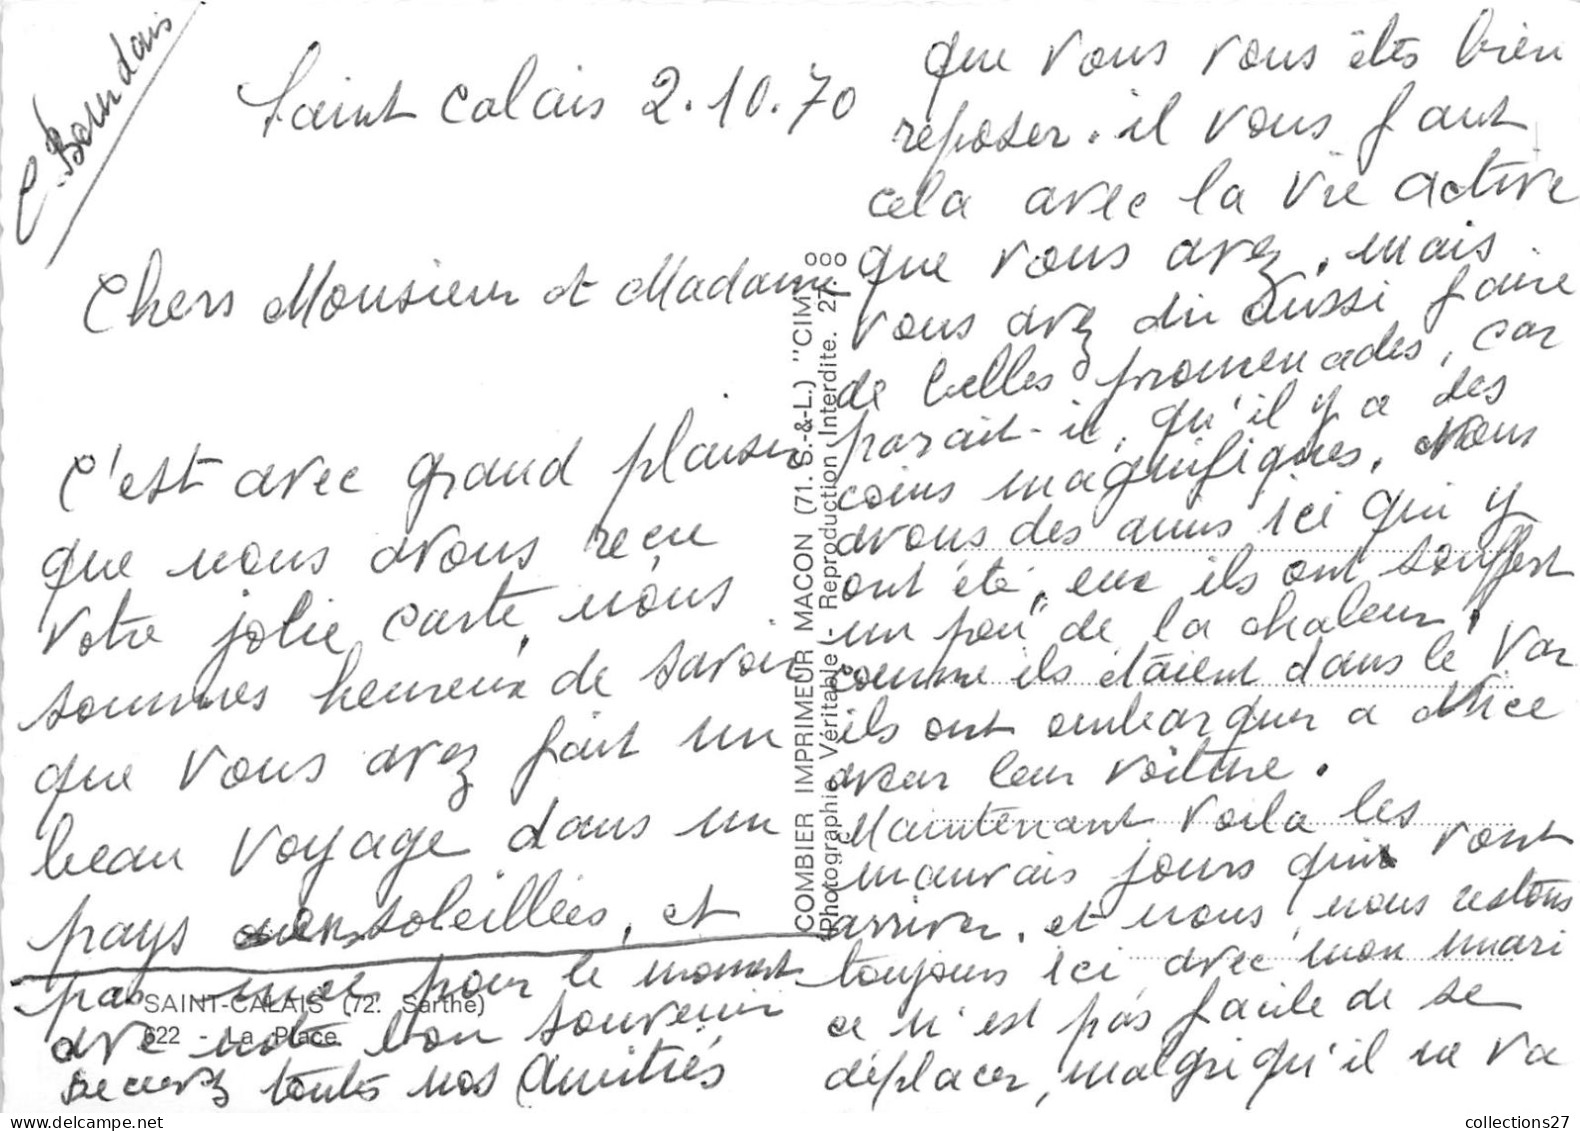 C. Bourdais
Saint Calais 2.10.70
Chers Monsieur et Madame
C'est avec grand plaisir
que nous avons reçu
votre jolie carte, nous
sommes heureux de savoir
que vous avez fait un
beau voyage dans un
pays ensoleillées, et
que vous vous êtes bien
reposer. il vous faut
cela avec la vie active
que vous avez, mais
vous avez du aussi faire
de belles promenades, car
parait-il, qu'il y a des
coins magnifiques. Nous
avons des amis ici qui y
ont été, eux ils ont souffert
un peu de la chaleur,
comme ils étaient dans le Var
ils ont embarquer a Nice
avec leur voiture.
Maintenant voila les
mauvais jours qui vont
arriver, et nous, nous restons
toujours ici, avec mon mari
ce n'est pas facile de se
déplacer, malgré qu'il ne va
pas mal pour le moment
avec notre bon souvenir
recevez toutes nos Amitiés
SAINT-CALAIS (72. Sarthe)
622 - La Place.
COMBIER IMPRIMEUR MACON (71. S.-&-L.) "CIM"
Photographie Véritable - Reproduction Interdite. 27.
collections27